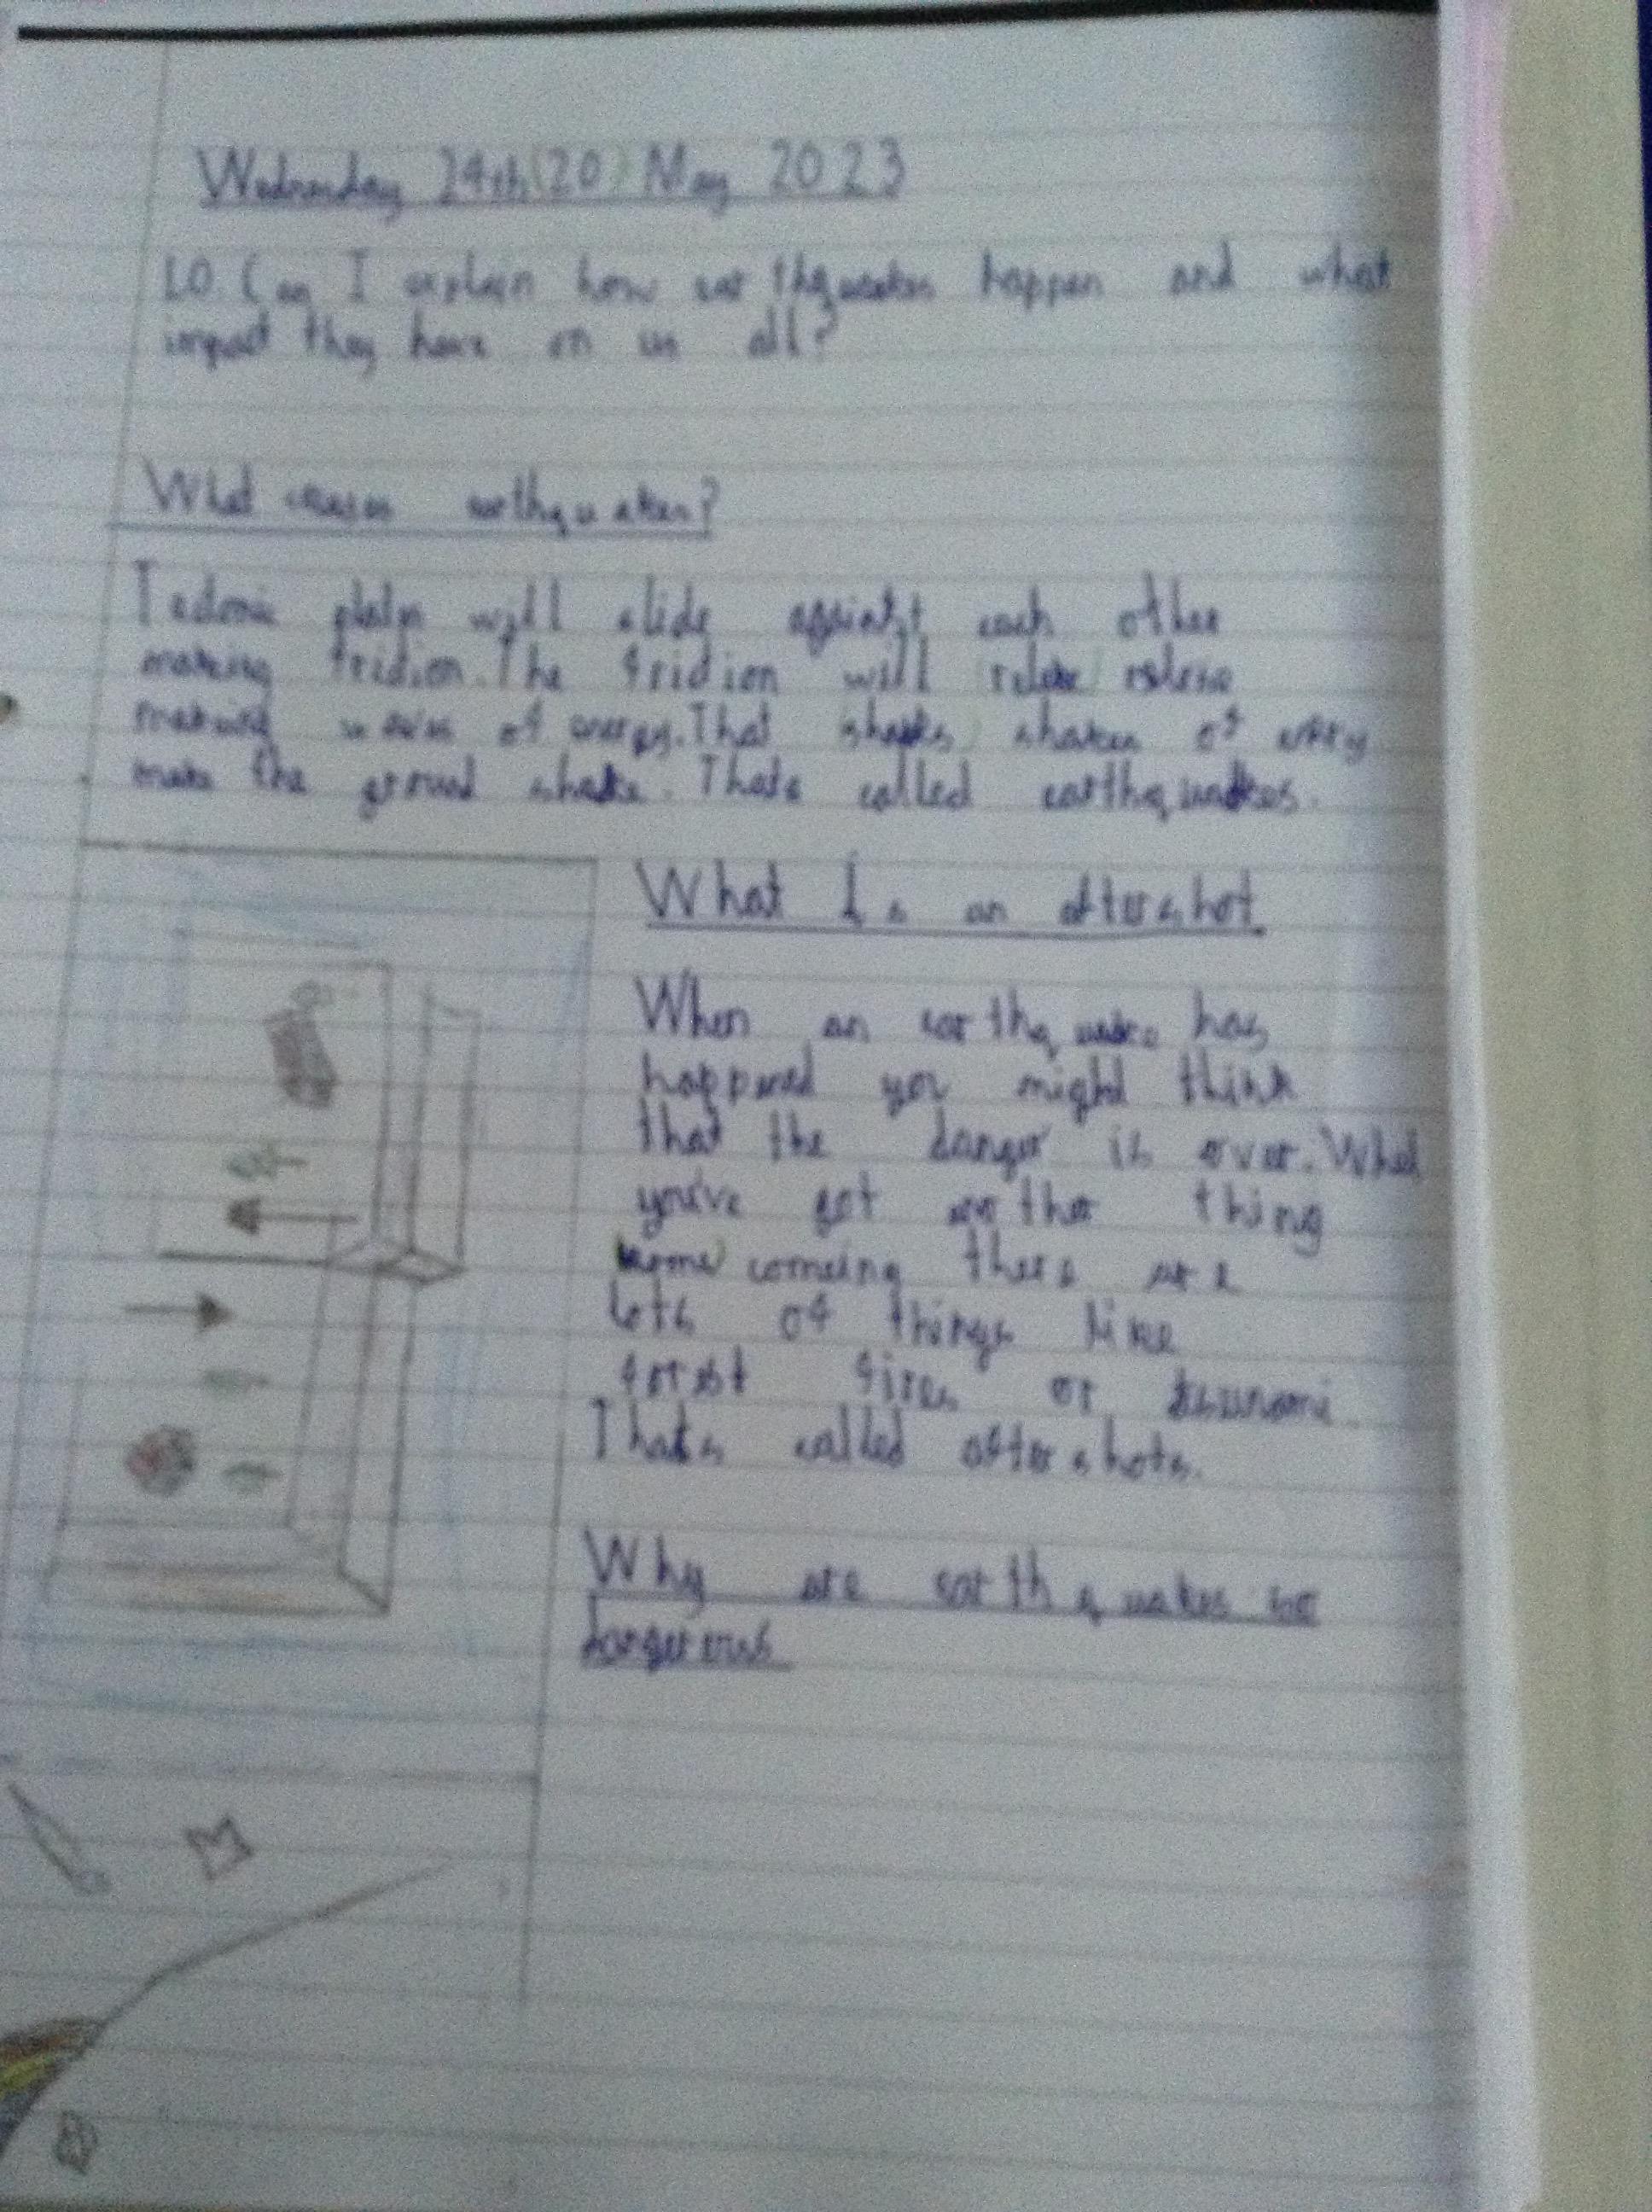 Wednesday 24th (20) May 2023
LO. Can I explain how earthquakes happen and what
impact they have on us all?
What causes earthquakes?
Tectonic plates will slide against each other
making friction. The friction will release
making waves of energy. That shakes of
make the ground shake. Thats called earthquakes.
What Is an aftershot
When an earthquake has
happened you might think
that the danger is over. What
you've got another thing
come comeing theres are
lots of things like
forest fires or tsunami.
Thats called aftershots.
Why are earthquakes so
dangerous